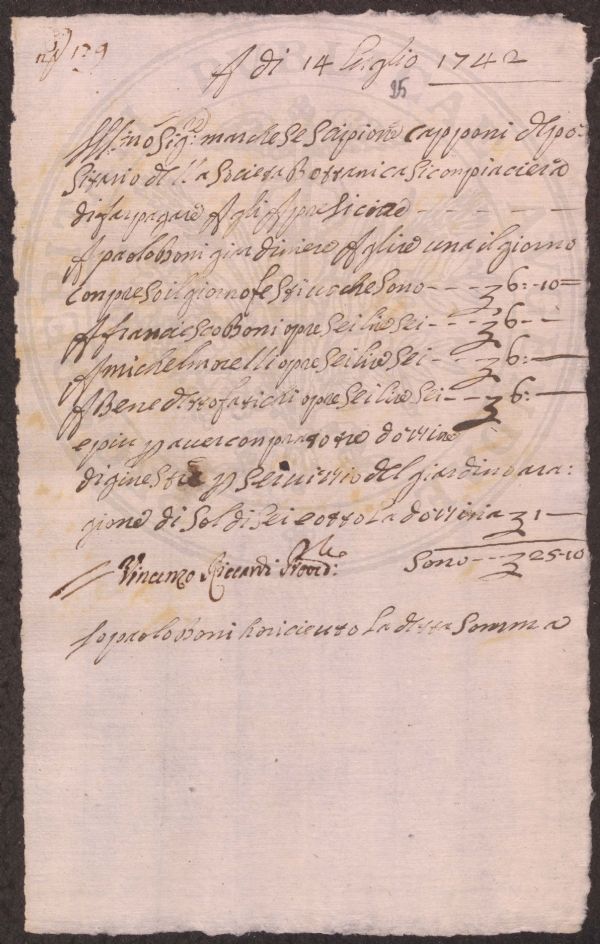 nº 139
A di 14 luglio 1742
25
Ill:mo Sig:re marchese Scipione capponi depo:
sitario della Societa Bottanica si conpiacierà
di far pagare A gli Apresiciore - - - - - -
A paolo Boni giardiniere A glire una il giorno
conpreso il giorno festivo che sono - - - £ 6: -10=
A francesco Boni opre sei lire sei - - - £ 6 - -
A michel morelli opre sei lire sei - - - £ 6: -
A Benedetto fatichi opre sei lire sei - - - £ 6: -
e piu p aver conprato tre dozzine
di ginestre p servizzio del giardino a ra:
gione di soldi sei e otto la dozzina £ 1 -
Vincenzo Riccardi Provid:re Sono - - £ 25-10
Io paolo Boni ho riceuto la detta somma